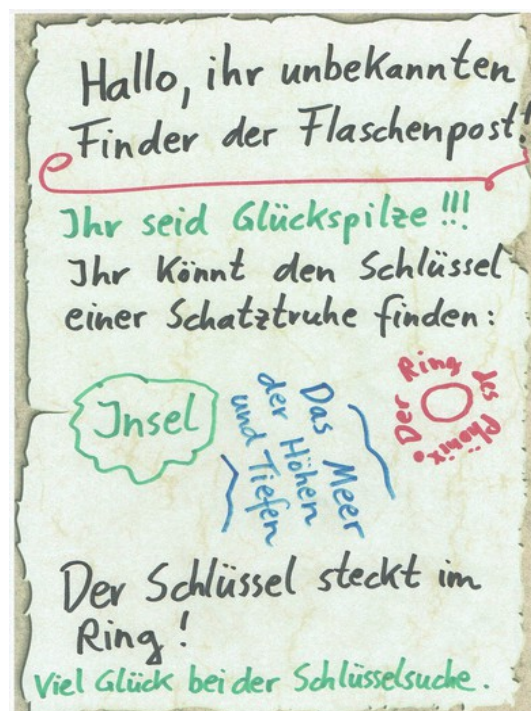 Hallo, ihr unbekannten
Finder der Flaschenpost!
Ihr seid Glückspilze!!!
Ihr könnt den Schlüssel
einer Schatztruhe finden:
Insel
Das Meer
der Höhen
und Tiefen
Der Ring des Phönix
Der Schlüssel steckt im
Ring!
Viel Glück bei der Schlüsselsuche.